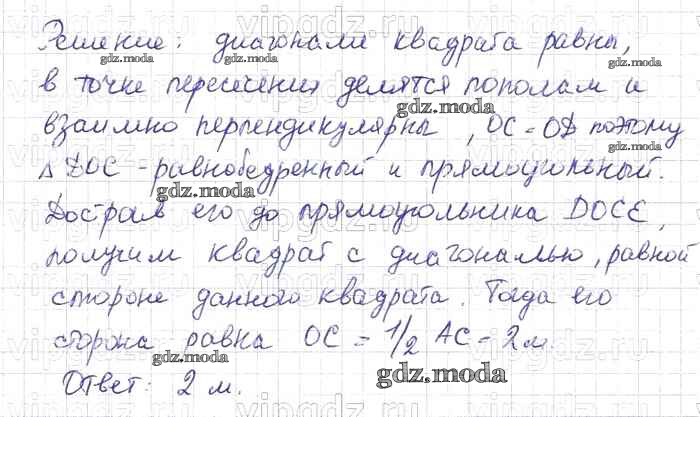 Решение: диагонали квадрата равны,
в точке пересечения делятся пополам и
взаимно перпендикулярны, OC = OD поэтому
△ DOC - равнобедренный и прямоугольный.
Достроив его до прямоугольника DOCE,
получим квадрат с диагональю, равной
стороне данного квадрата. Тогда его
сторона равна OC = 1/2 AC = 2 м.
Ответ: 2 м.
gdz.moda
gdz.moda
gdz.moda
gdz.moda
gdz.moda
gdz.moda
gdz.moda
gdz.moda